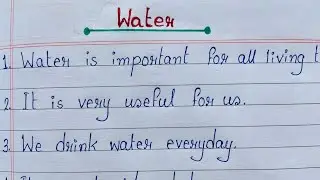 Water
1. Water is important for all living
2. It is very useful for us.
3. We drink water everyday.